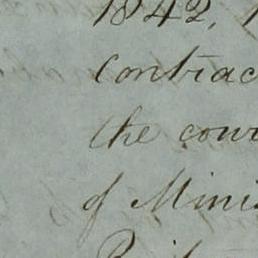 1842,
contrac
the cour
of Minis